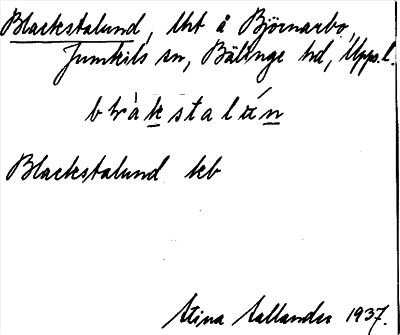 Blackstalund, lht å Björnarbo,
Jumkils sn, Bälinge hd, Upps.l.
Blackstalund kb
Stina Callander 1937.